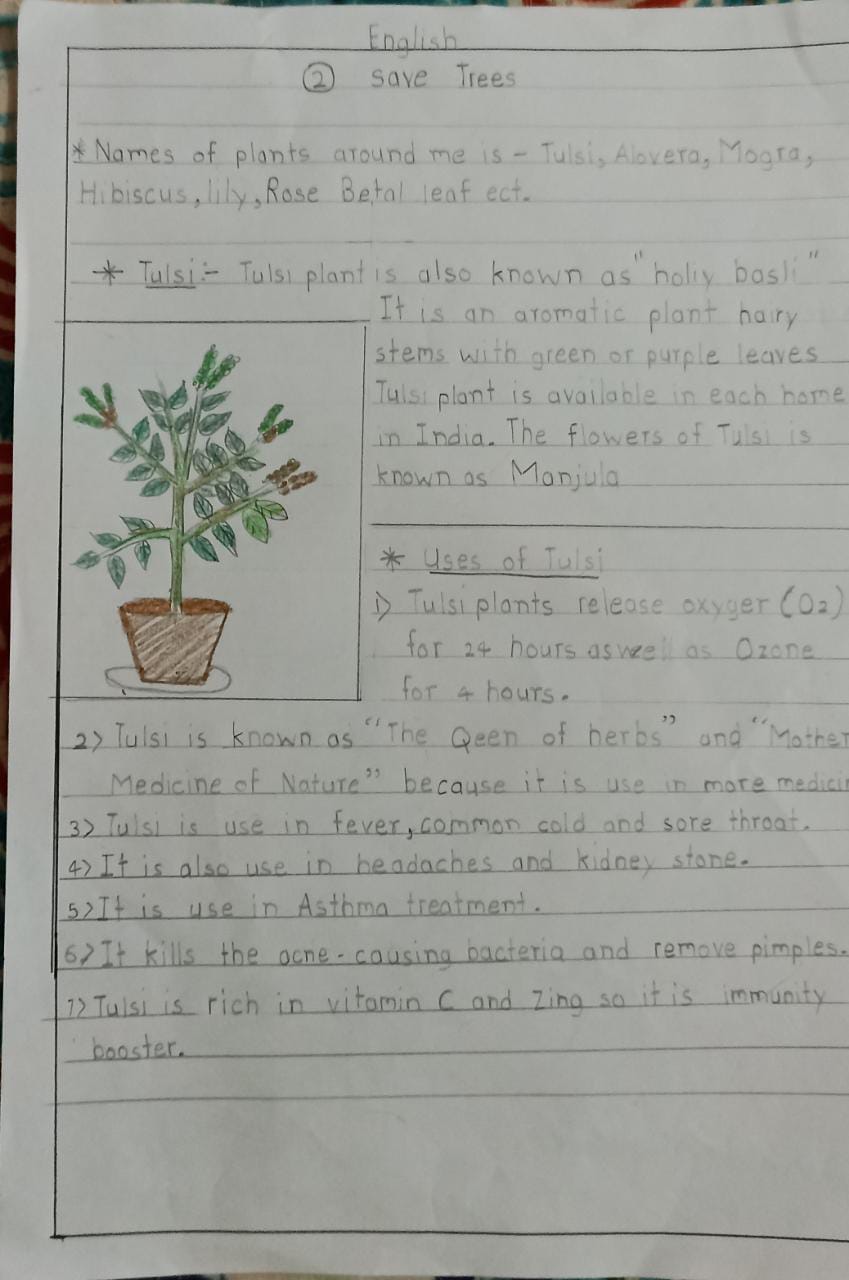 English
② save Trees
* Names of plants around me is - Tulsi, Alovera, Mogra,
Hibiscus, lily, Rose Betal leaf ect.
* Tulsi :- Tulsi plant is also known as "holiy basli"
It is an aromatic plant hairy
stems with green or purple leaves
Tulsi plant is available in each home
in India. The flowers of Tulsi is
known as Manjula
* Uses of Tulsi
1) Tulsi plants release oxyger (O2)
for 24 hours aswell as Ozone
for 4 hours.
2) Tulsi is known as "The Qeen of herbs" and "Mother
Medicine of Nature" because it is use in more medicin
3) Tulsi is use in fever, common cold and sore throat.
4) It is also use in headaches and kidney stone.
5) It is use in Asthma treatment.
6) It kills the acne-causing bacteria and remove pimples.
7) Tulsi is rich in vitamin C and Zing so it is immunity
booster.